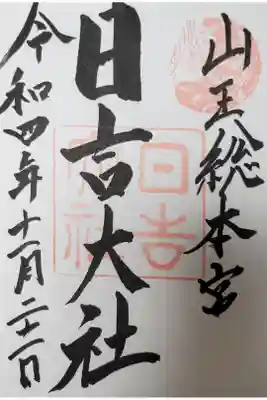 山王総本宮
日吉大社
令和四年十一月二十一日
日吉
大社